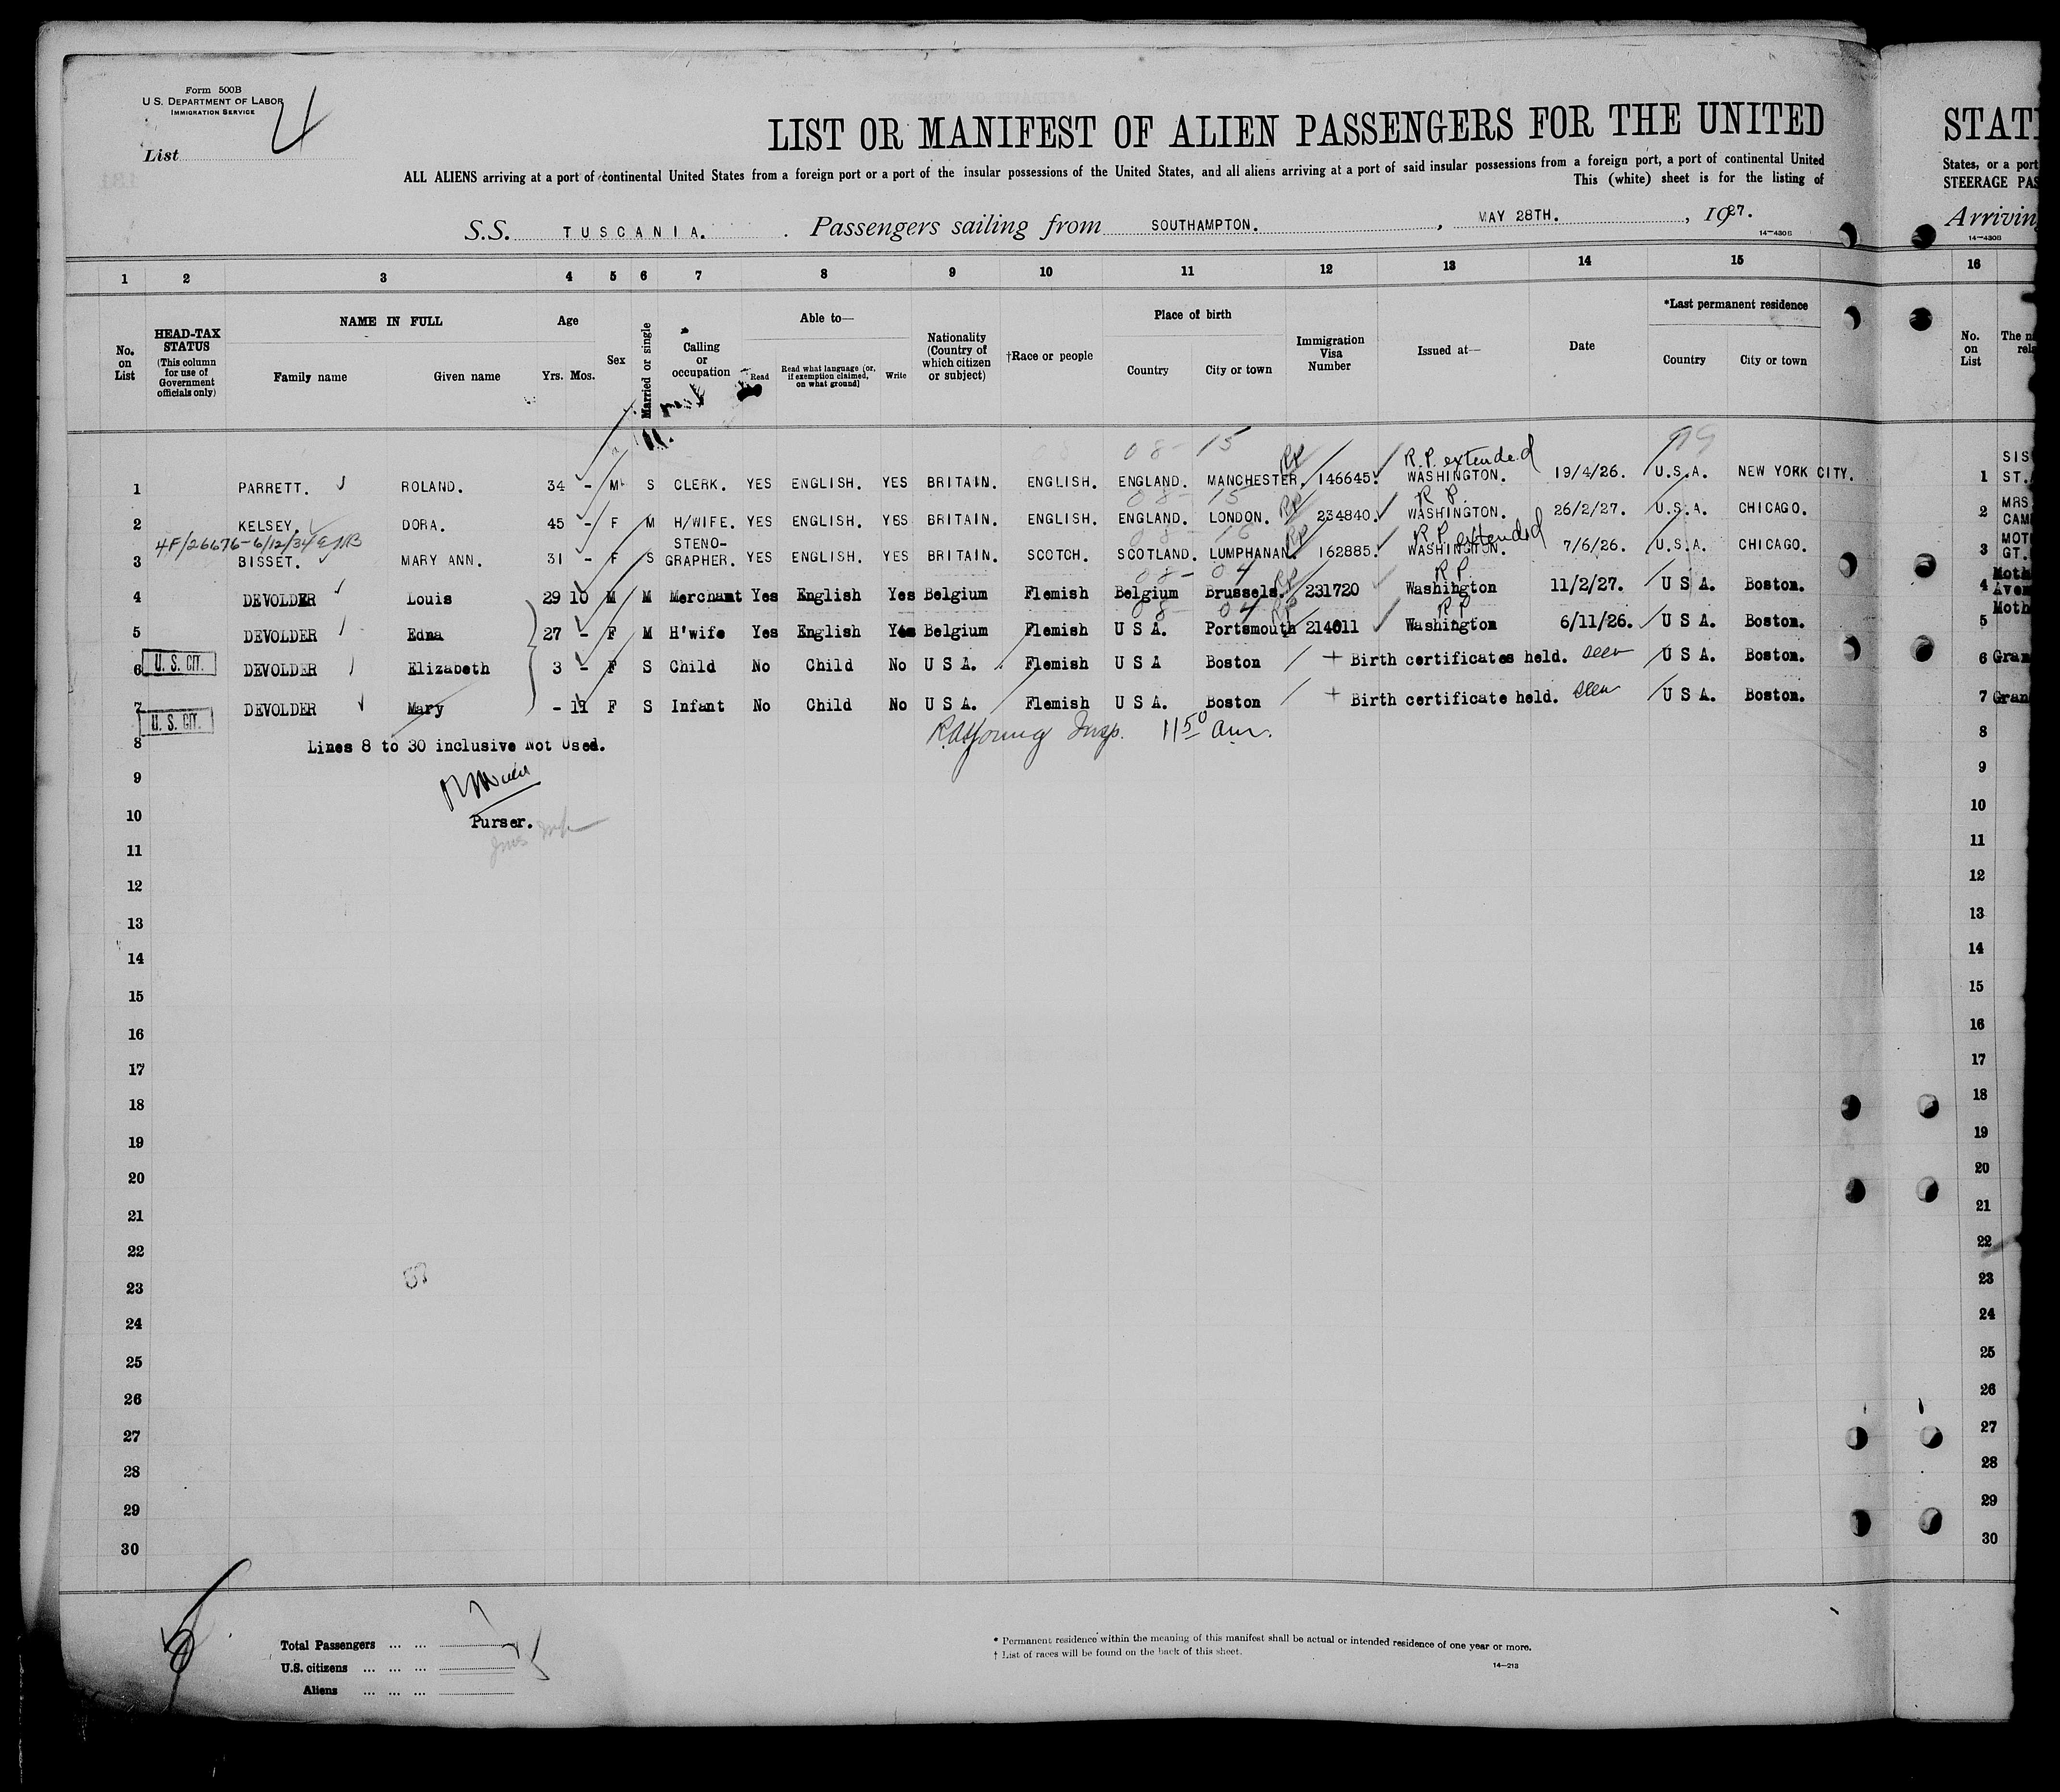 Form 500B
U.S. DEPARTMENT OF LABOR
IMMIGRATION SERVICE
List 4
LIST OR MANIFEST OF ALIEN PASSENGERS FOR THE UNITED
ALL ALIENS arriving at a port of continental United States from a foreign port or a port of the insular possessions of the United States, and all aliens arriving at a port of said insular possessions from a foreign port, a port of continental United
This (white) sheet is for the listing of
S.S. TUSCANIA. Passengers sailing from SOUTHAMPTON. , MAY 28TH. , 1927.
14-430B
1 2 3 4 5 6 7 8 9 10 11 12 13 14 15
No. on List
HEAD-TAX STATUS (This column for use of Government officials only)
NAME IN FULL
Family name Given name
Age
Yrs. Mos.
Sex
Married or single
Calling or occupation
Able to—
Read
Read what language (or, if exemption claimed, on what ground)
Write
Nationality (Country of which citizen or subject)
†Race or people
Place of birth
Country City or town
Immigration Visa Number
Issued at—
Date
*Last permanent residence
Country City or town
08- 15 99
RP R.P. extended
1 PARRETT. ROLAND. 34 - M S CLERK. YES ENGLISH. YES BRITAIN. ENGLISH. ENGLAND. MANCHESTER. 146645. WASHINGTON. 19/4/26. U.S.A. NEW YORK CITY.
08- 15 RP R P.
2 KELSEY. DORA. 45 - F M H/WIFE. YES ENGLISH. YES BRITAIN. ENGLISH. ENGLAND. LONDON. 234840. WASHINGTON. 26/2/27. U.S.A. CHICAGO.
4F/26676-6/12/34
08- 16 RP R P extended
3 BISSET. MARY ANN. 31 - F S STENO-GRAPHER. YES ENGLISH. YES BRITAIN. SCOTCH. SCOTLAND. LUMPHANAN. 162885. WASHINGTON. 7/6/26. U.S.A. CHICAGO.
08- 04 RP R P
4 DEVOLDER Louis 29 10 M M Merchant Yes English Yes Belgium Flemish Belgium Brussels. 231720 Washington 11/2/27. U S A. Boston.
08 04 RP R P
5 DEVOLDER Edna 27 - F M H'wife Yes English Yes Belgium Flemish U S A. Portsmouth 214011 Washington 6/11/26. U S A. Boston.
U. S. CIT.
6 DEVOLDER Elizabeth 3 - F S Child No Child No U S A. Flemish U S A Boston + Birth certificates held. seen U S A. Boston.
7 DEVOLDER Mary - 11 F S Infant No Child No U S A. Flemish U S A. Boston + Birth certificate held. seen U S A. Boston.
U. S. CIT.
8 Lines 8 to 30 inclusive Not Used.
Insp. 11 50 am.
9
10 Purser.
11
12
13
14
15
16
17
18
19
20
21
22
23
24
25
26
27
28
29
30
Total Passengers ... ... 7
U.S. citizens ... ... ...
Aliens ... ... ...
* Permanent residence within the meaning of this manifest shall be actual or intended residence of one year or more.
† List of races will be found on the back of this sheet.
14-213
STAT
States, or a port
STEERAGE PAS
Arriving
14-430B
16
No. on List
The n
rel
1 SIS
ST.
2 MRS
CAM
3 MOT
GT.
4 Moth
Aven
5 Moth
6 Gran
7 Gran
8
9
10
11
12
13
14
15
16
17
18
19
20
21
22
23
24
25
26
27
28
29
30